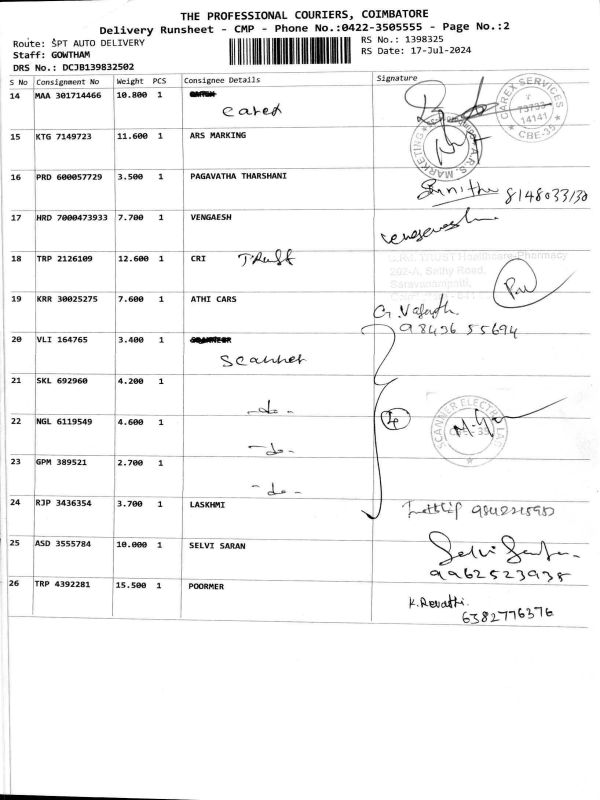 THE PROFESSIONAL COURIERS, COIMBATORE
Delivery Runsheet - CMP - Phone No.:0422-3505555 - Page No.:2
Route: SPT AUTO DELIVERY
RS No.: 1398325
Staff: GOWTHAM
RS Date: 17-Jul-2024
DRS No.: DCJB139832502
S No Consignment No Weight PCS Consignee Details Signature
14 MAA 301714466 10.800 1
CAREX SERVICES
73733
14141
CBE-35
15 KTG 7149723 11.600 1 ARS MARKING
A.R.S. MARKETING
16 PRD 600057729 3.500 1 PAGAVATHA THARSHANI
8148033130
17 HRD 7000473933 7.700 1 VENGAESH
18 TRP 2126109 12.600 1 CRI Trust
TRUST Healthcare-Pharmacy
202-A, Sathy Road,
Saravanampatti,
19 KRR 30025275 7.600 1 ATHI CARS
98436 55694
20 VLI 164765 3.400 1
Scanner
21 SKL 692960 4.200 1
-do-
4
SCANNER ELECTRICALS
22 NGL 6119549 4.600 1
-do-
23 GPM 389521 2.700 1
-do-
24 RJP 3436354 3.700 1 LASKHMI
25 ASD 3555784 10.000 1 SELVI SARAN
9962523938
26 TRP 4392281 15.500 1 POORMER
K. Revathi.
6382776376